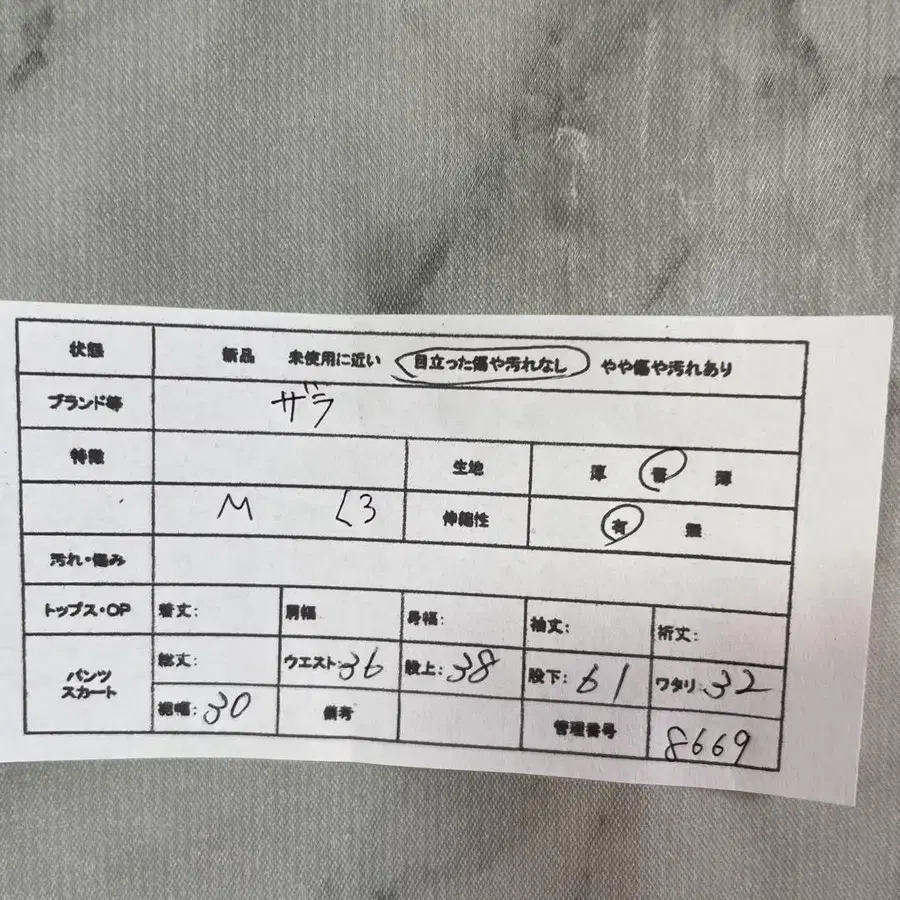 状態 新品 未使用に近い 目立った傷や汚れなし やや傷や汚れあり
ブランド等 ザラ
特徴 生地 厚 普 薄
M L3 伸縮性 有 無
汚れ・傷み
トップス・OP 着丈: 肩幅 身幅: 袖丈: 裄丈:
パンツ スカート 総丈: ウエスト:36 股上:38 股下:61 ワタリ:32
裾幅:30 備考 管理番号 8669